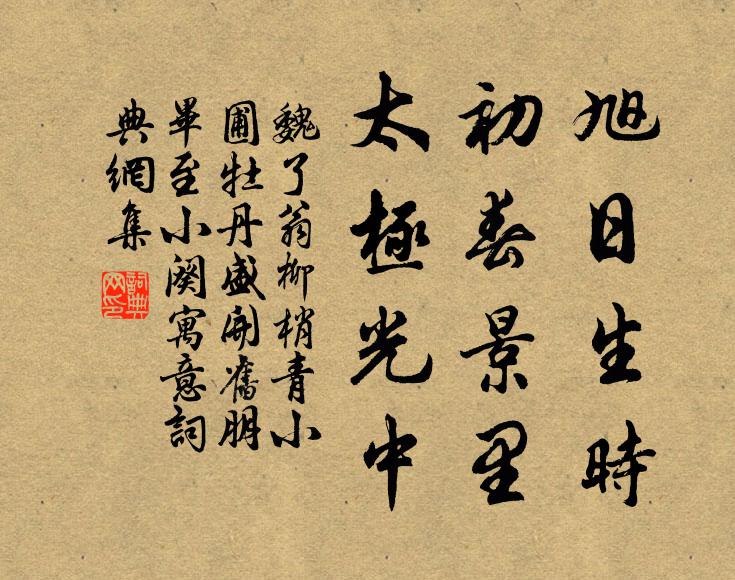 旭日生時
初春景里
太極光中
魏了翁柳梢青小
圃牡丹盛開舊朋
畢至小闋寓意詞
典網集
詞典
网印